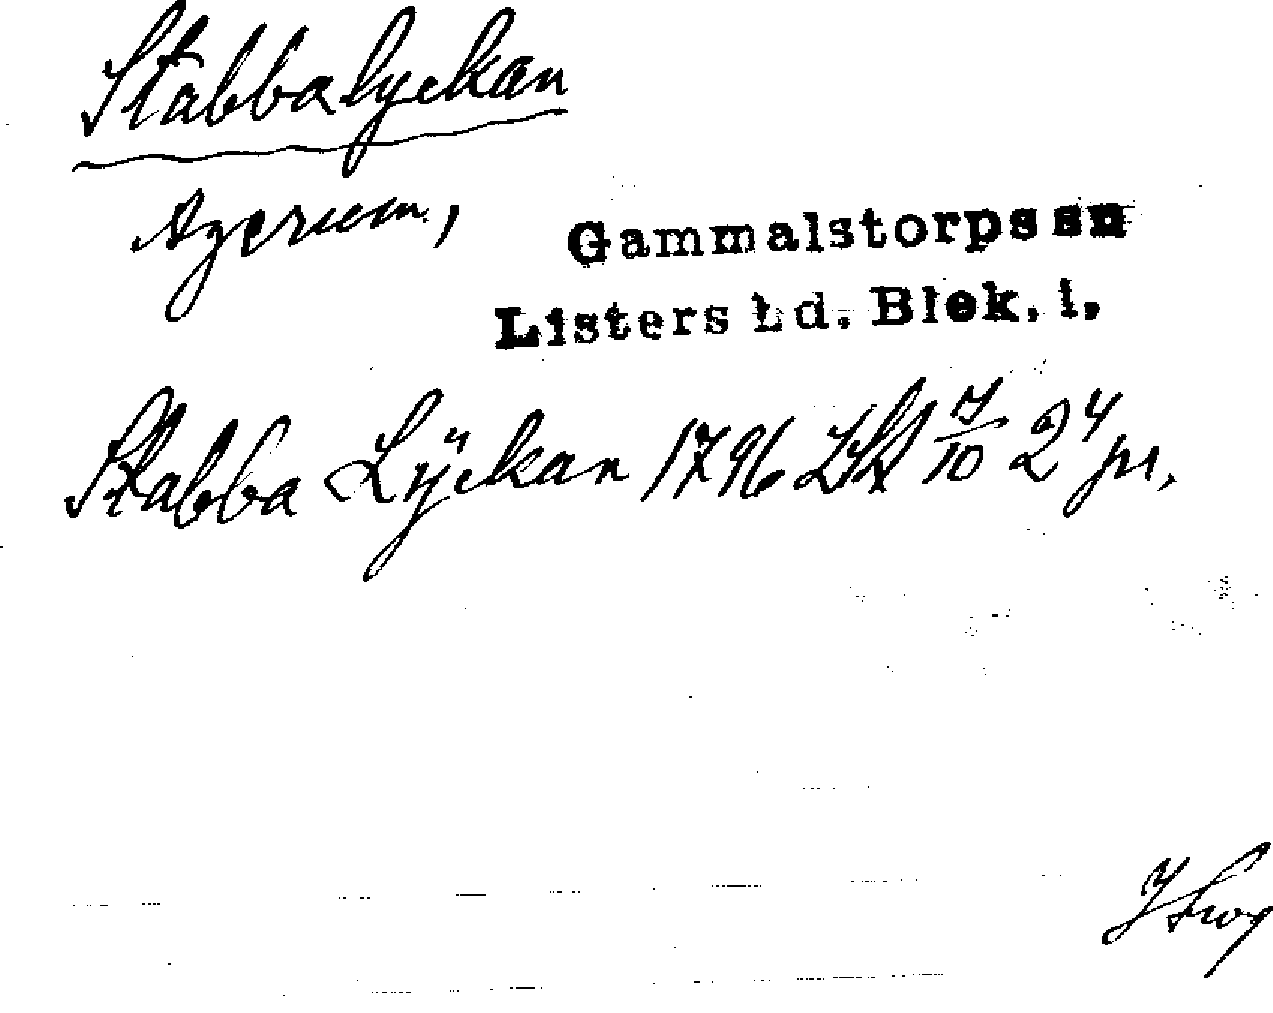 Stabbalyckan
Agerum,
Gammalstorps sn
Listers hd. Blek. l.
Stabba Lÿckan 1796 LSA 7/10 24 jn,